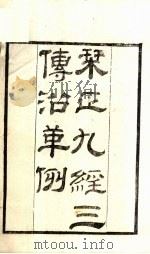 栞正九經三
傳沿革例